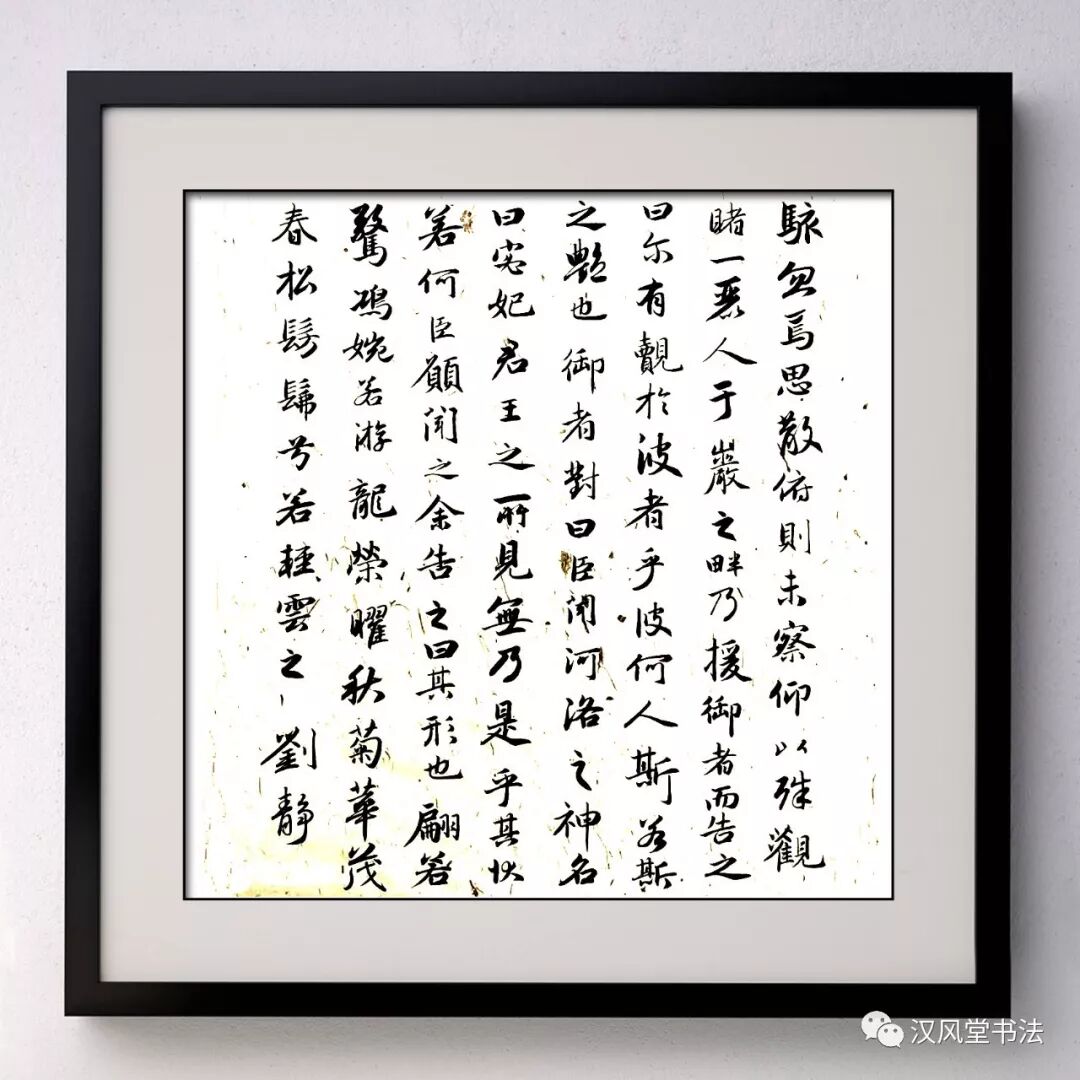 駭忽焉思散俯則未察仰以殊觀
睹一麗人于巖之畔乃援御者而告之
曰尔有覿於彼者乎彼何人斯若斯
之艷也御者對曰臣聞河洛之神名
曰宓妃君王之所見無乃是乎其狀
若何臣願聞之余告之曰其形也翩若
驚鴻婉若游龍榮曜秋菊華茂
春松髣髴兮若輕雲之 劉靜
汉风堂书法